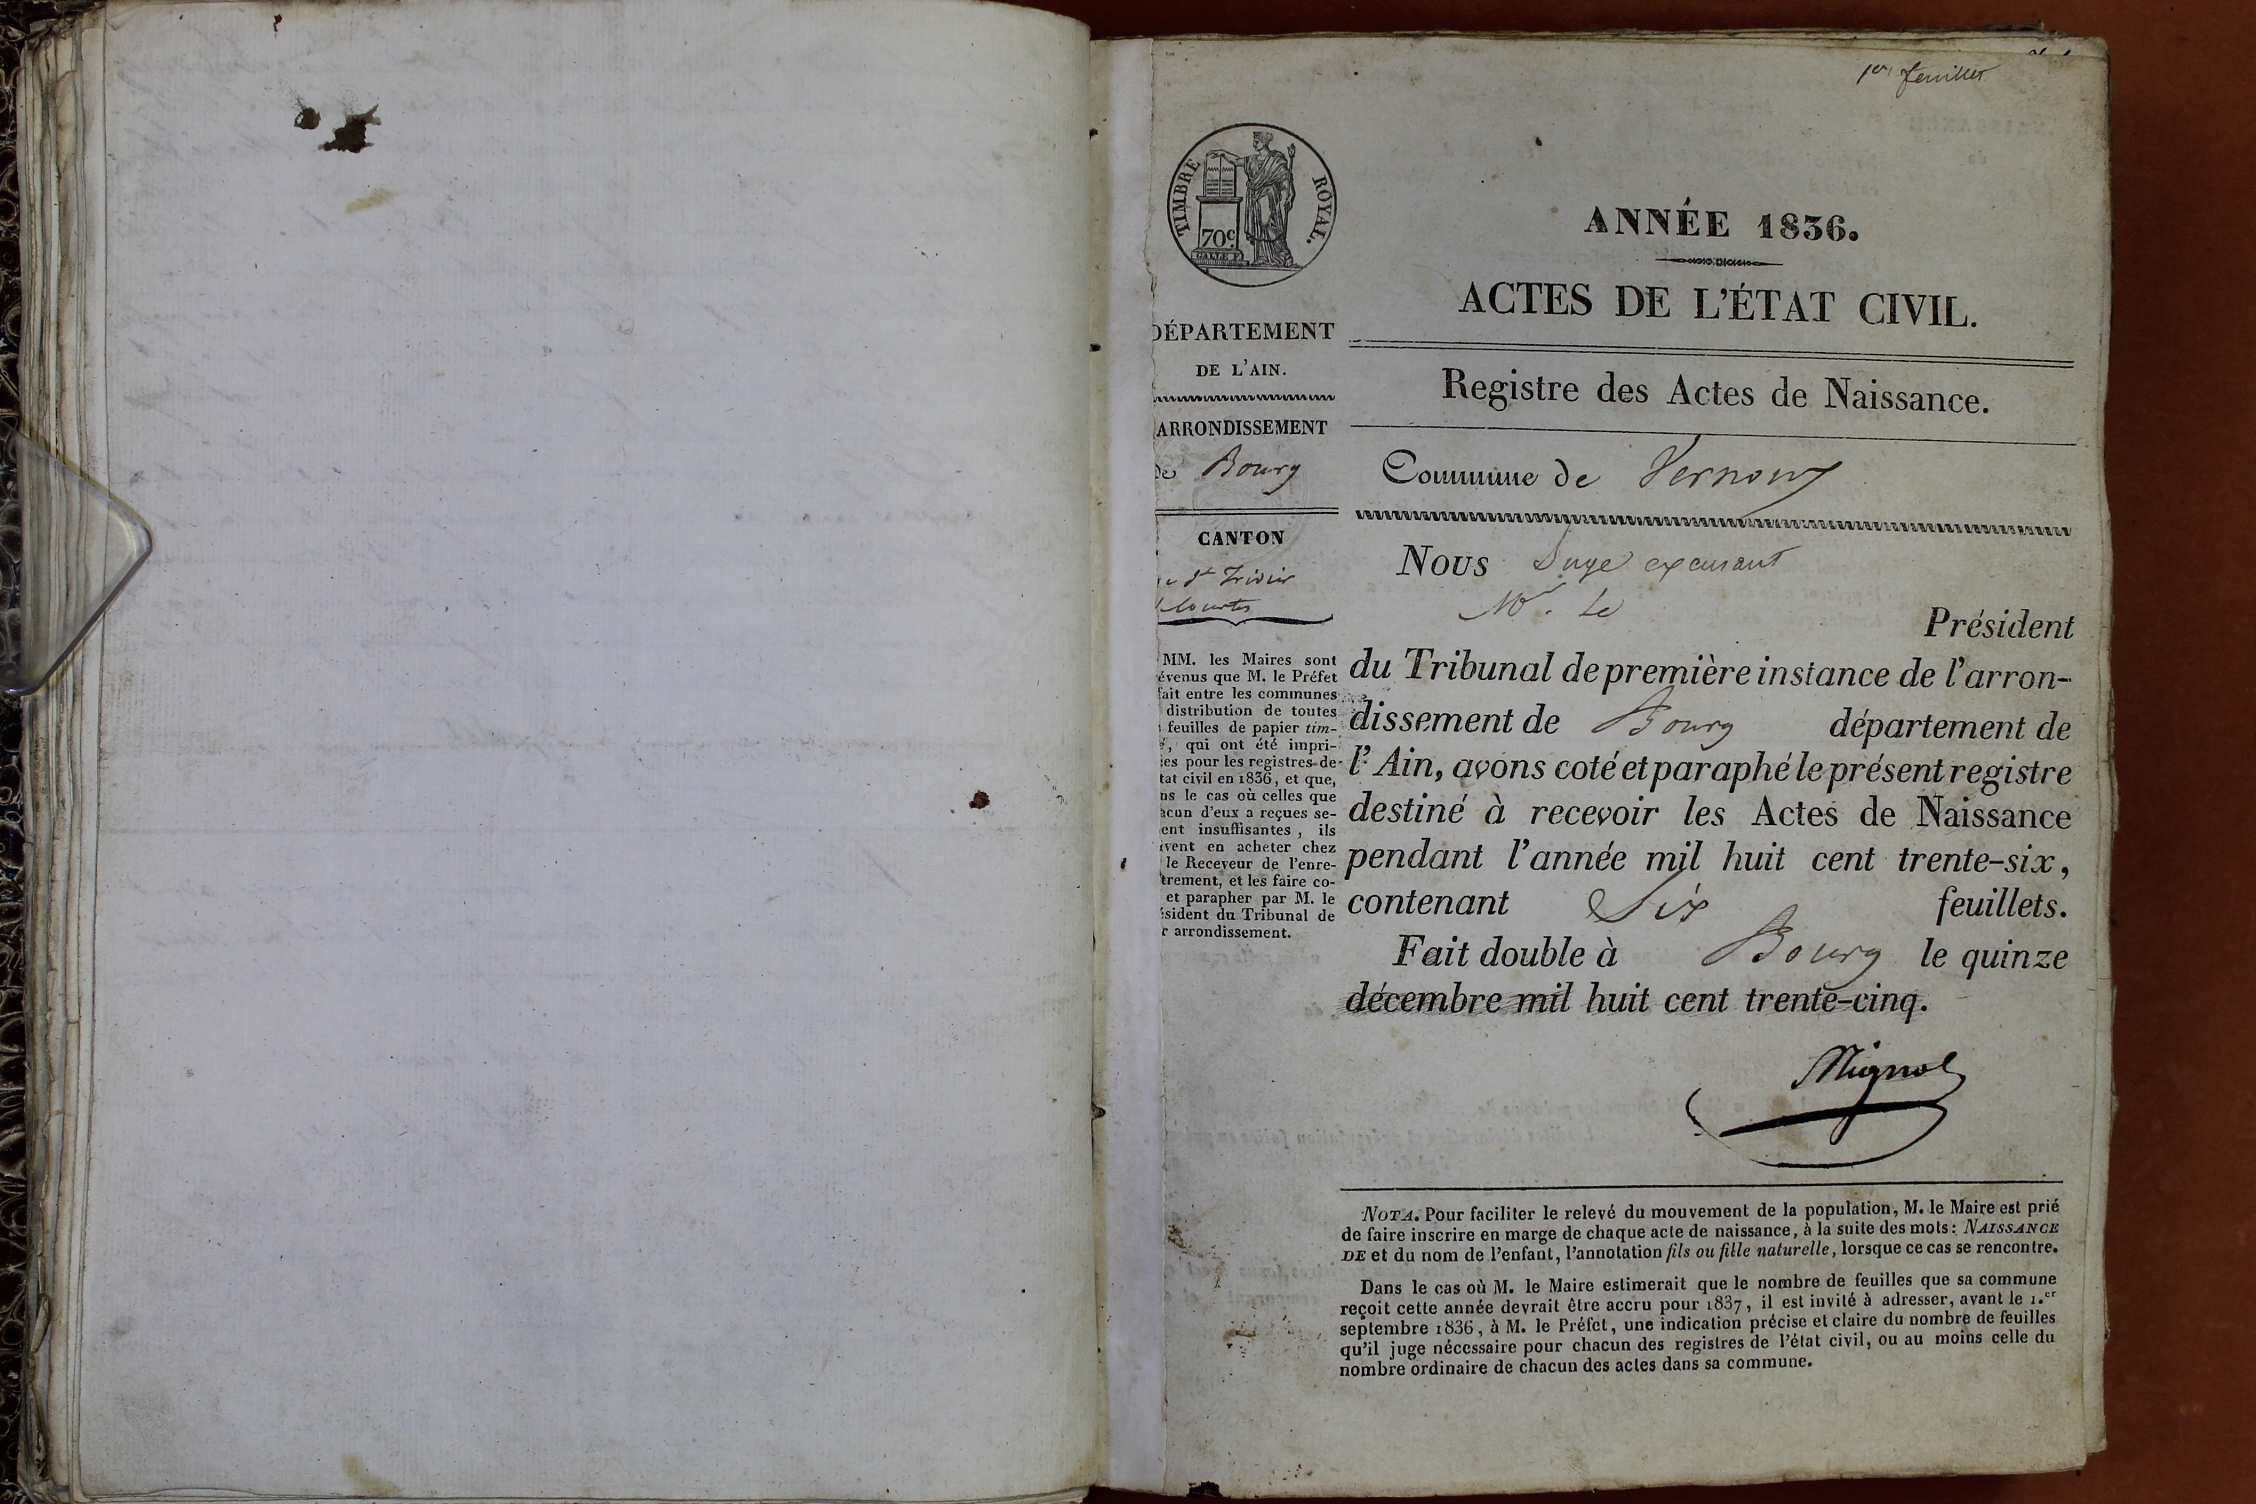 1er feuillet
TIMBRE ROYAL.
70c
ANNÉE 1836.
ACTES DE L'ÉTAT CIVIL.
DÉPARTEMENT
DE L'AIN.
ARRONDISSEMENT
de Bourg
CANTON
de St Trivier
Courtes
MM. les Maires sont
évenus que M. le Préfet
fait entre les communes
distribution de toutes
feuilles de papier tim-
é, qui ont été impri-
es pour les registres de
tat civil en 1836, et que,
ns le cas où celles que
acun d'eux a reçues se-
ent insuffisantes, ils
ivent en acheter chez
le Receveur de l'enre-
trement, et les faire co-
et parapher par M. le
ésident du Tribunal de
r arrondissement.
Registre des Actes de Naissance.
Commune de Vernoux
Nous Juge excusant
Mr. Le
Président
du Tribunal de première instance de l'arron-
dissement de Bourg département de
l'Ain, avons coté et paraphé le présent registre
destiné à recevoir les Actes de Naissance
pendant l'année mil huit cent trente-six,
contenant Six feuillets.
Fait double à Bourg le quinze
décembre mil huit cent trente-cinq.
NOTA. Pour faciliter le relevé du mouvement de la population, M. le Maire est prié
de faire inscrire en marge de chaque acte de naissance, à la suite des mots: NAISSANCE
DE et du nom de l'enfant, l'annotation fils ou fille naturelle, lorsque ce cas se rencontre.
Dans le cas où M. le Maire estimerait que le nombre de feuilles que sa commune
reçoit cette année devrait être accru pour 1837, il est invité à adresser, avant le 1.er
septembre 1836, à M. le Préfet, une indication précise et claire du nombre de feuilles
qu'il juge nécessaire pour chacun des registres de l'état civil, ou au moins celle du
nombre ordinaire de chacun des actes dans sa commune.